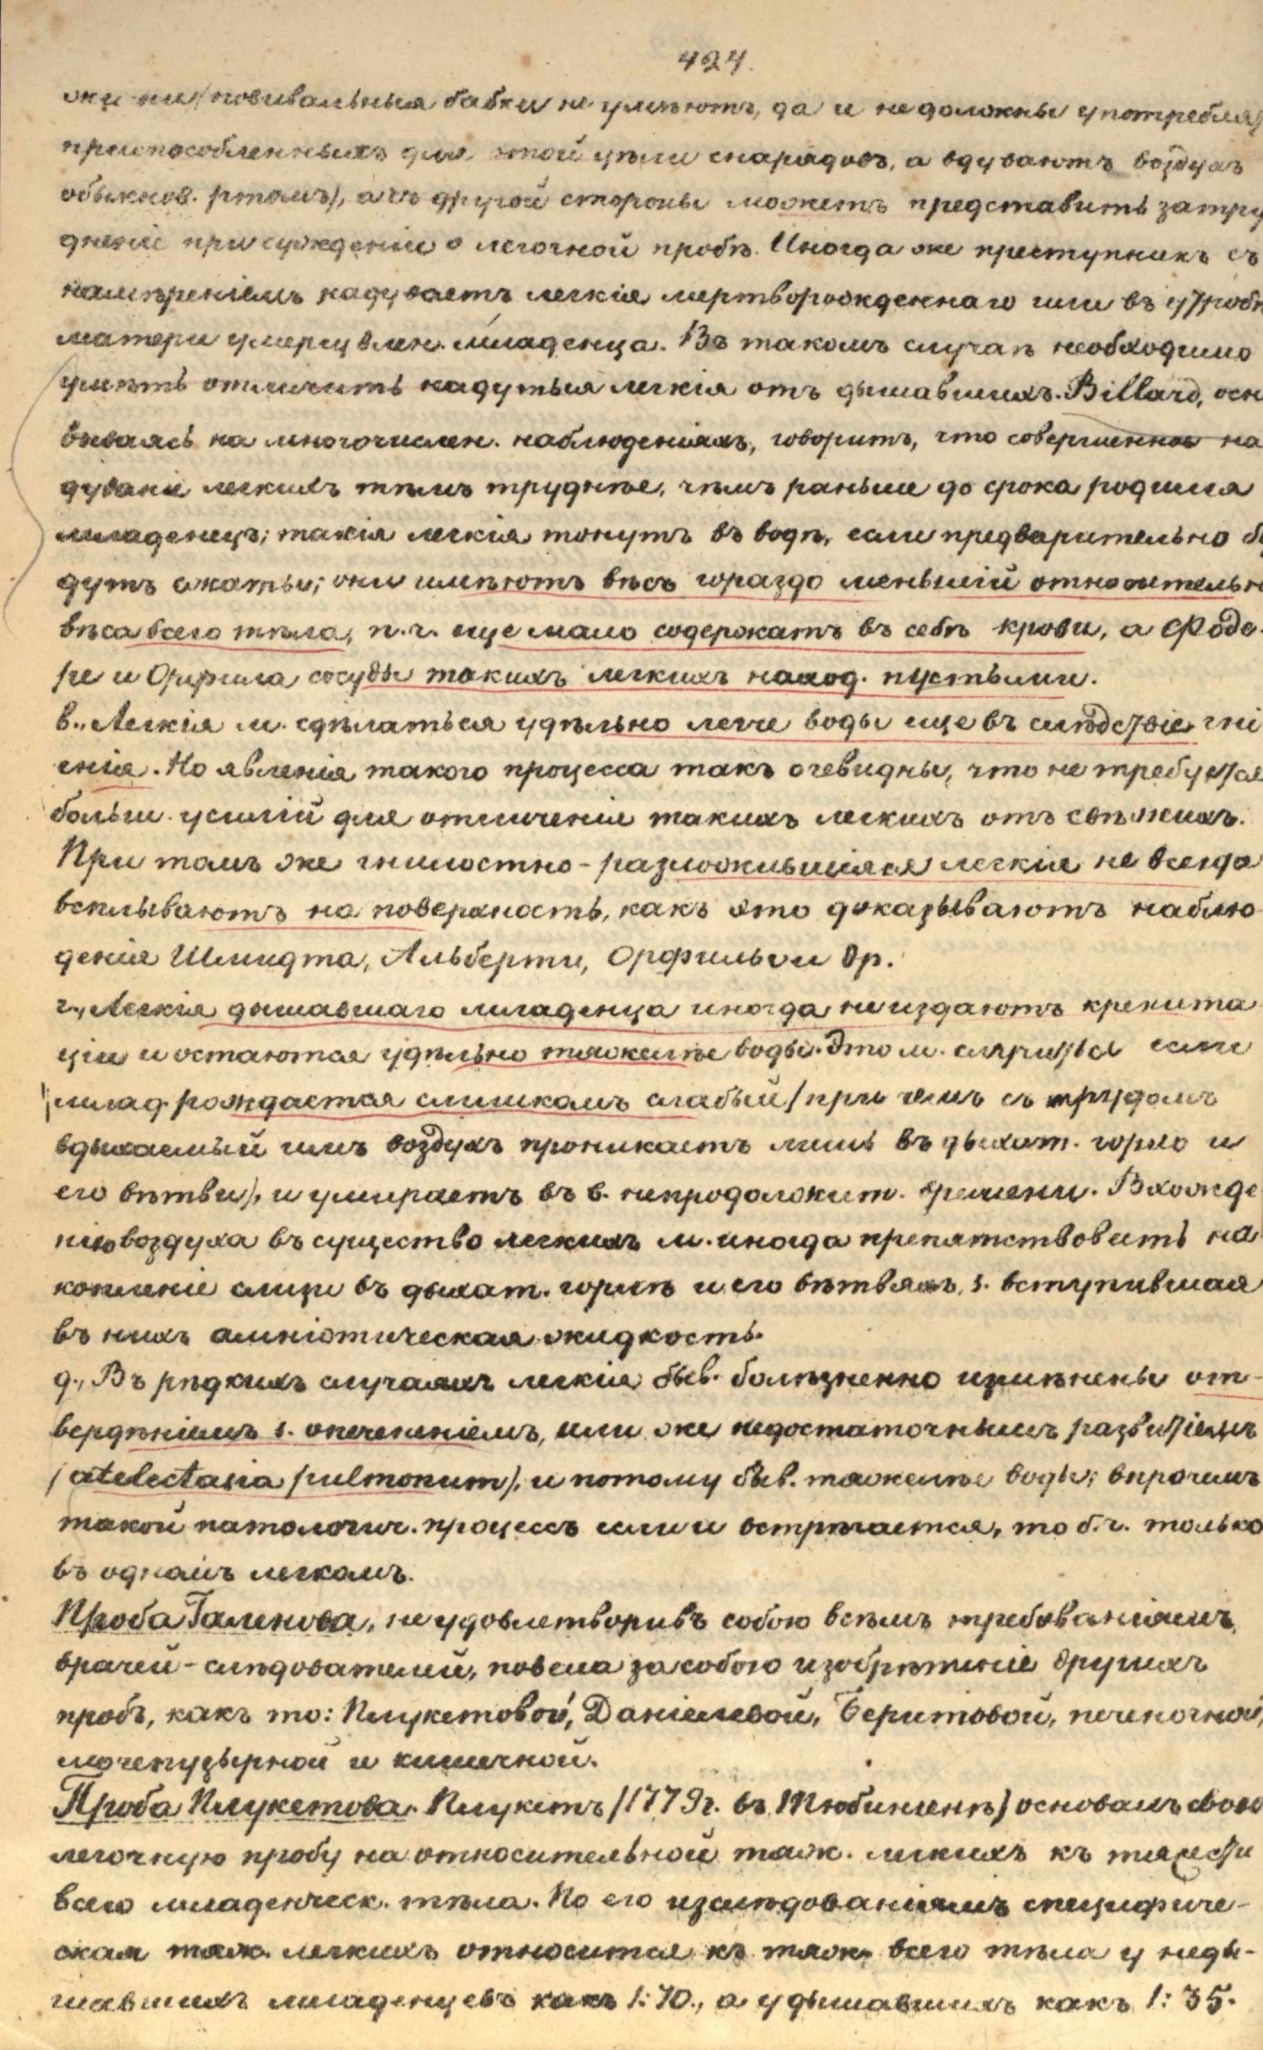 424.
(повивальныя бабки не умѣютъ, да и недолжны употребля
приспособленныхъ для этой цѣли снарядовъ, а вдуваютъ воздухъ
обыкнов. ртомъ), а съ другой стороны можетъ представить затру
дненіе при сужденіи о легочной пробѣ. Иногда же преступникъ съ
намѣреніемъ надуваетъ легкія мертворожденнаго или въ утробѣ
матери умерщвлен. младенца. Въ такомъ случаѣ необходимо
умѣть отличить надутыя легкія отъ дышавшихъ. Billard, осн
вываясь на многочислен. наблюденіяхъ, говоритъ, что совершенное на
дуваніе легкихъ тѣмъ труднѣе, чѣмъ раньше до срока родился
младенецъ; такія легкія тонутъ въ водѣ, если предварительно бу
дутъ сжаты; они имѣютъ вѣсъ гораздо меньшій относительно
вѣса всего тѣла, п. ч. еще мало содержатъ въ себѣ крови, а Фоде-
ре и Орфила сосуды такихъ легкихъ наход. пустыми.
в., Легкія м. сдѣлаться удѣльно легче воды еще въ слѣдствіе гні
енія. Но явленія такого процесса такъ очевидны, что не требуется
больш. усилій для отличенія такихъ легкихъ отъ свѣжихъ.
При томъ же гнилостно-разложившіяся легкія не всегда
всплываютъ на поверхность, какъ это доказываютъ наблю-
денія Шмидта, Альберти, Орфилы и др.
г., Легкія дышавшаго младенца иногда не издаютъ крепита
ціи и остаются удѣльно тяжелѣе воды. Это м. случиться если
млад. рождается слишкомъ слабый (при чемъ съ трудомъ
вдыхаемый имъ воздухъ проникаетъ лишь въ дыхат. горло и
его вѣтви), и умираетъ въ в. непродолжит. времени. Вхожде
нію воздуха въ существо легкихъ м. иногда препятствовать на
копленіе слизи въ дыхат. горлѣ и его вѣтвяхъ, s. вступившая
въ нихъ амніотическая жидкость.
д., Въ рѣдкихъ случаяхъ легкія быв. болѣзненно измѣнены от-
вердѣніемъ s. опеченѣніемъ, или же недостаточнымъ развитіемъ
(atelectasia pulmonum), и потому быв. тяжелѣе воды; впрочемъ
такой патологич. процессъ если и встрѣчается, то б. ч. только
въ одномъ легкомъ.
Проба Галенова, не удовлетворивъ собою всѣмъ требованіямъ
врачей-слѣдователей, повела за собою изобрѣтеніе другихъ
пробъ, какъ то: Плукетовой, Даніелевой, Беритовой, печеночной,
мочепузырной и кишечной.
Проба Плукетова. Плукетъ (1779г. въ Тюбингенѣ) основалъ свою
легочную пробу на относительной тяж. легкихъ къ тяжести
всего младенческ. тѣла. По его изслѣдованіямъ специфиче-
ская тяж. легкихъ относится къ тяж. всего тѣла у неды-
шавшихъ младенцевъ какъ 1:70., а у дышавшихъ какъ 1:35.